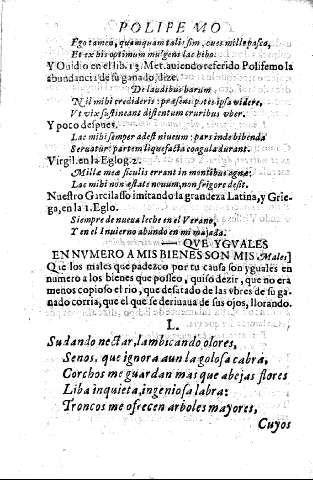 POLIFEMO
Ego tamen, quamquam talis sim, oues mille pasco,
Et ex his optimum mulgens lac bibo.
Y Ouidio en el lib. 13. Met. auiendo referido Polifemo la
abundancia de su ganado, dize.
De laudibus harum
Nil mihi credideris: præsens potes ipsa videre,
Vt vix sustineant distentum cruribus vber.
Y poco despues.
Lac mihi semper adest niueum: pars inde bibenda
Seruatur: partem liquefacta coagula durant.
Virgil. en la Eglog. 2.
Mille meæ siculis errant in montibus agnæ:
Lac mihi non æstate nouum, non frigore desit.
Nuestro Garcilasso imitando la grandeza Latina, y Grie-
ga, en la 1. Eglo.
Siempre de nueua leche en el Verano,
Y en el Inuierno abundo en mi majada.
QVE YGVALES
EN NVMERO A MIS BIENES SON MIS Males]
Que los males que padezco por tu causa son yguales en
numero a los bienes que posseo, quiso dezir, que no era
menos copioso el rio, que desatado de las vbres de su ga-
nado corria, que el que se deriuaua de sus ojos, llorando.
L.
Sudando nectar, lambicando olores,
Senos, que ignora aun la golosa cabra,
Corchos me guardan mas que abejas flores
Liba inquieta, ingeniosa labra:
Troncos me ofrecen arboles mayores,
Cuyos